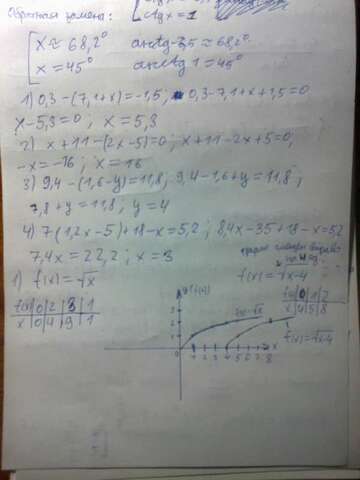 Обратная замена: [ctg x = 1
[x ≈ 68,2° arcctg 2,5 ≈ 68,2°
x = 45° arcctg 1 = 45°
1) 0,3-(7,1+x)=-1,5; 0,3-7,1+x+1,5=0
x-5,3=0; x=5,3
2) x+11-(2x-5)=0; x+11-2x+5=0,
-x=-16; x=16
3) 9,4-(1,6-y)=11,8; 9,4-1,6+y=11,8;
7,8+y=11,8; y=4
4) 7(1,2x-5)+18-x=5,2; 8,4x-35+18-x=5,2
7,4x=22,2; x=3
на 4 ед.
1) f(x)=√x f(x)=√x-4
f(x) 0 2 3 1
x 0 4 9 1
f(x) 0 1 2
x 4 5 8
y(f(x))
f(x)=√x
3
2
1
0 1 2 3 4 5 6 7 8 x
f(x)=√x-4